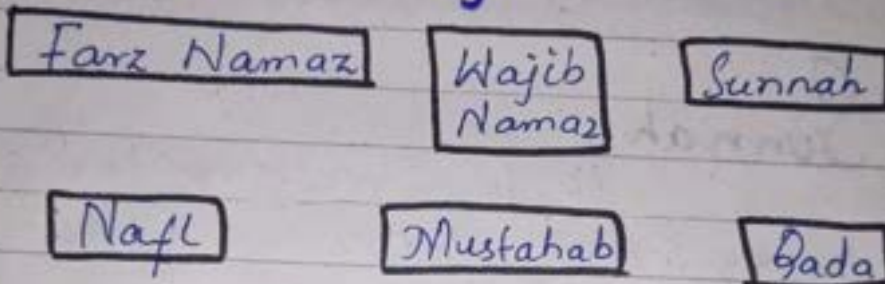 Farz Namaz
Wajib
Namaz
Sunnah
Nafl
Mustahab
Qada